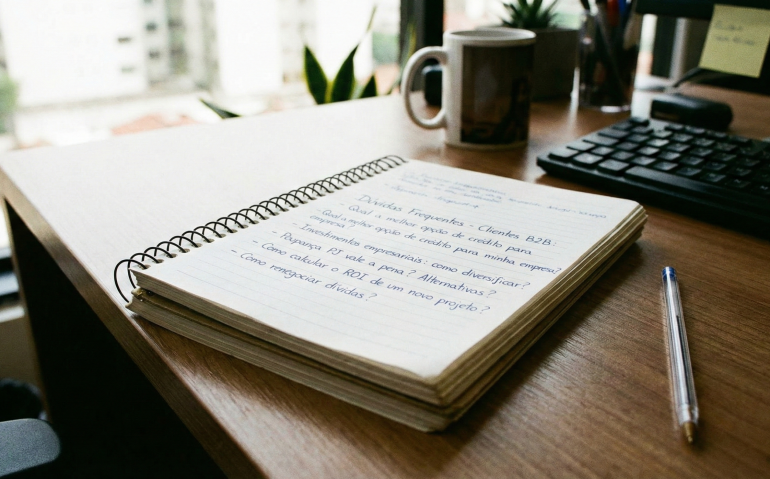 Dúvidas Frequentes - Clientes B2B:
- Qual a melhor opção de crédito para
Qual a melhor opção de crédito para minha empresa?
empresa?
- Investimentos empresariais: como diversificar?
- Poupança PJ vale a pena? Alternativas?
- Como calcular o ROI de um novo projeto?
- Como renegociar dívidas?